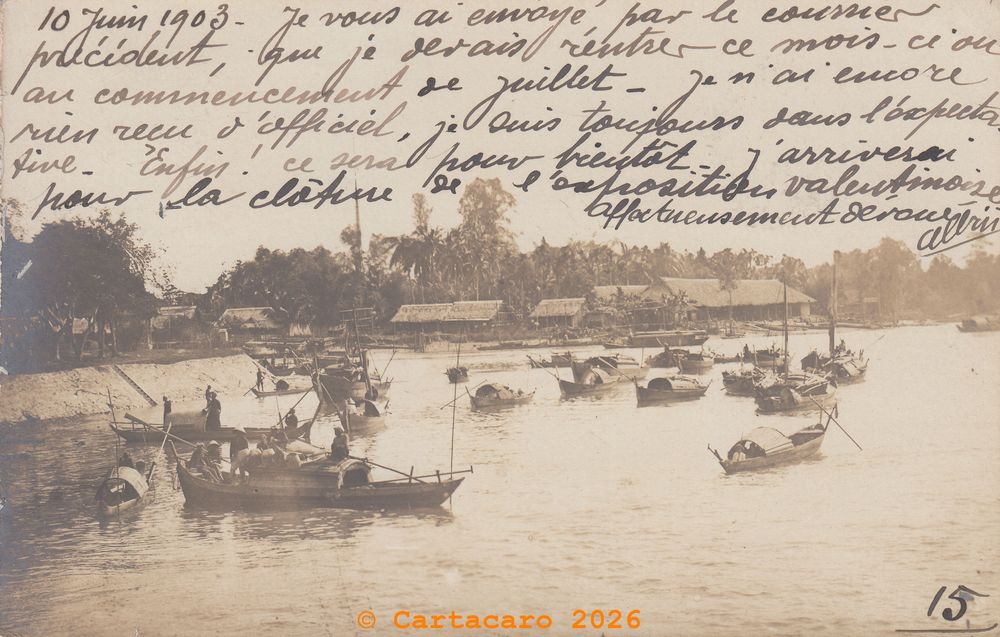 10 Juin 1903 - Je vous ai envoyé par le courrier
précédent, que je devais rentrer ce mois-ci ou
au commencement de juillet - Je n'ai encore
rien recu d'officiel, je suis toujours dans l'expecta
tive - Enfin! ce sera pour bientôt - J'arriverai
pour la clôture de l'exposition valentinoise
affectueusement de vous
15
© Cartacaro 2026